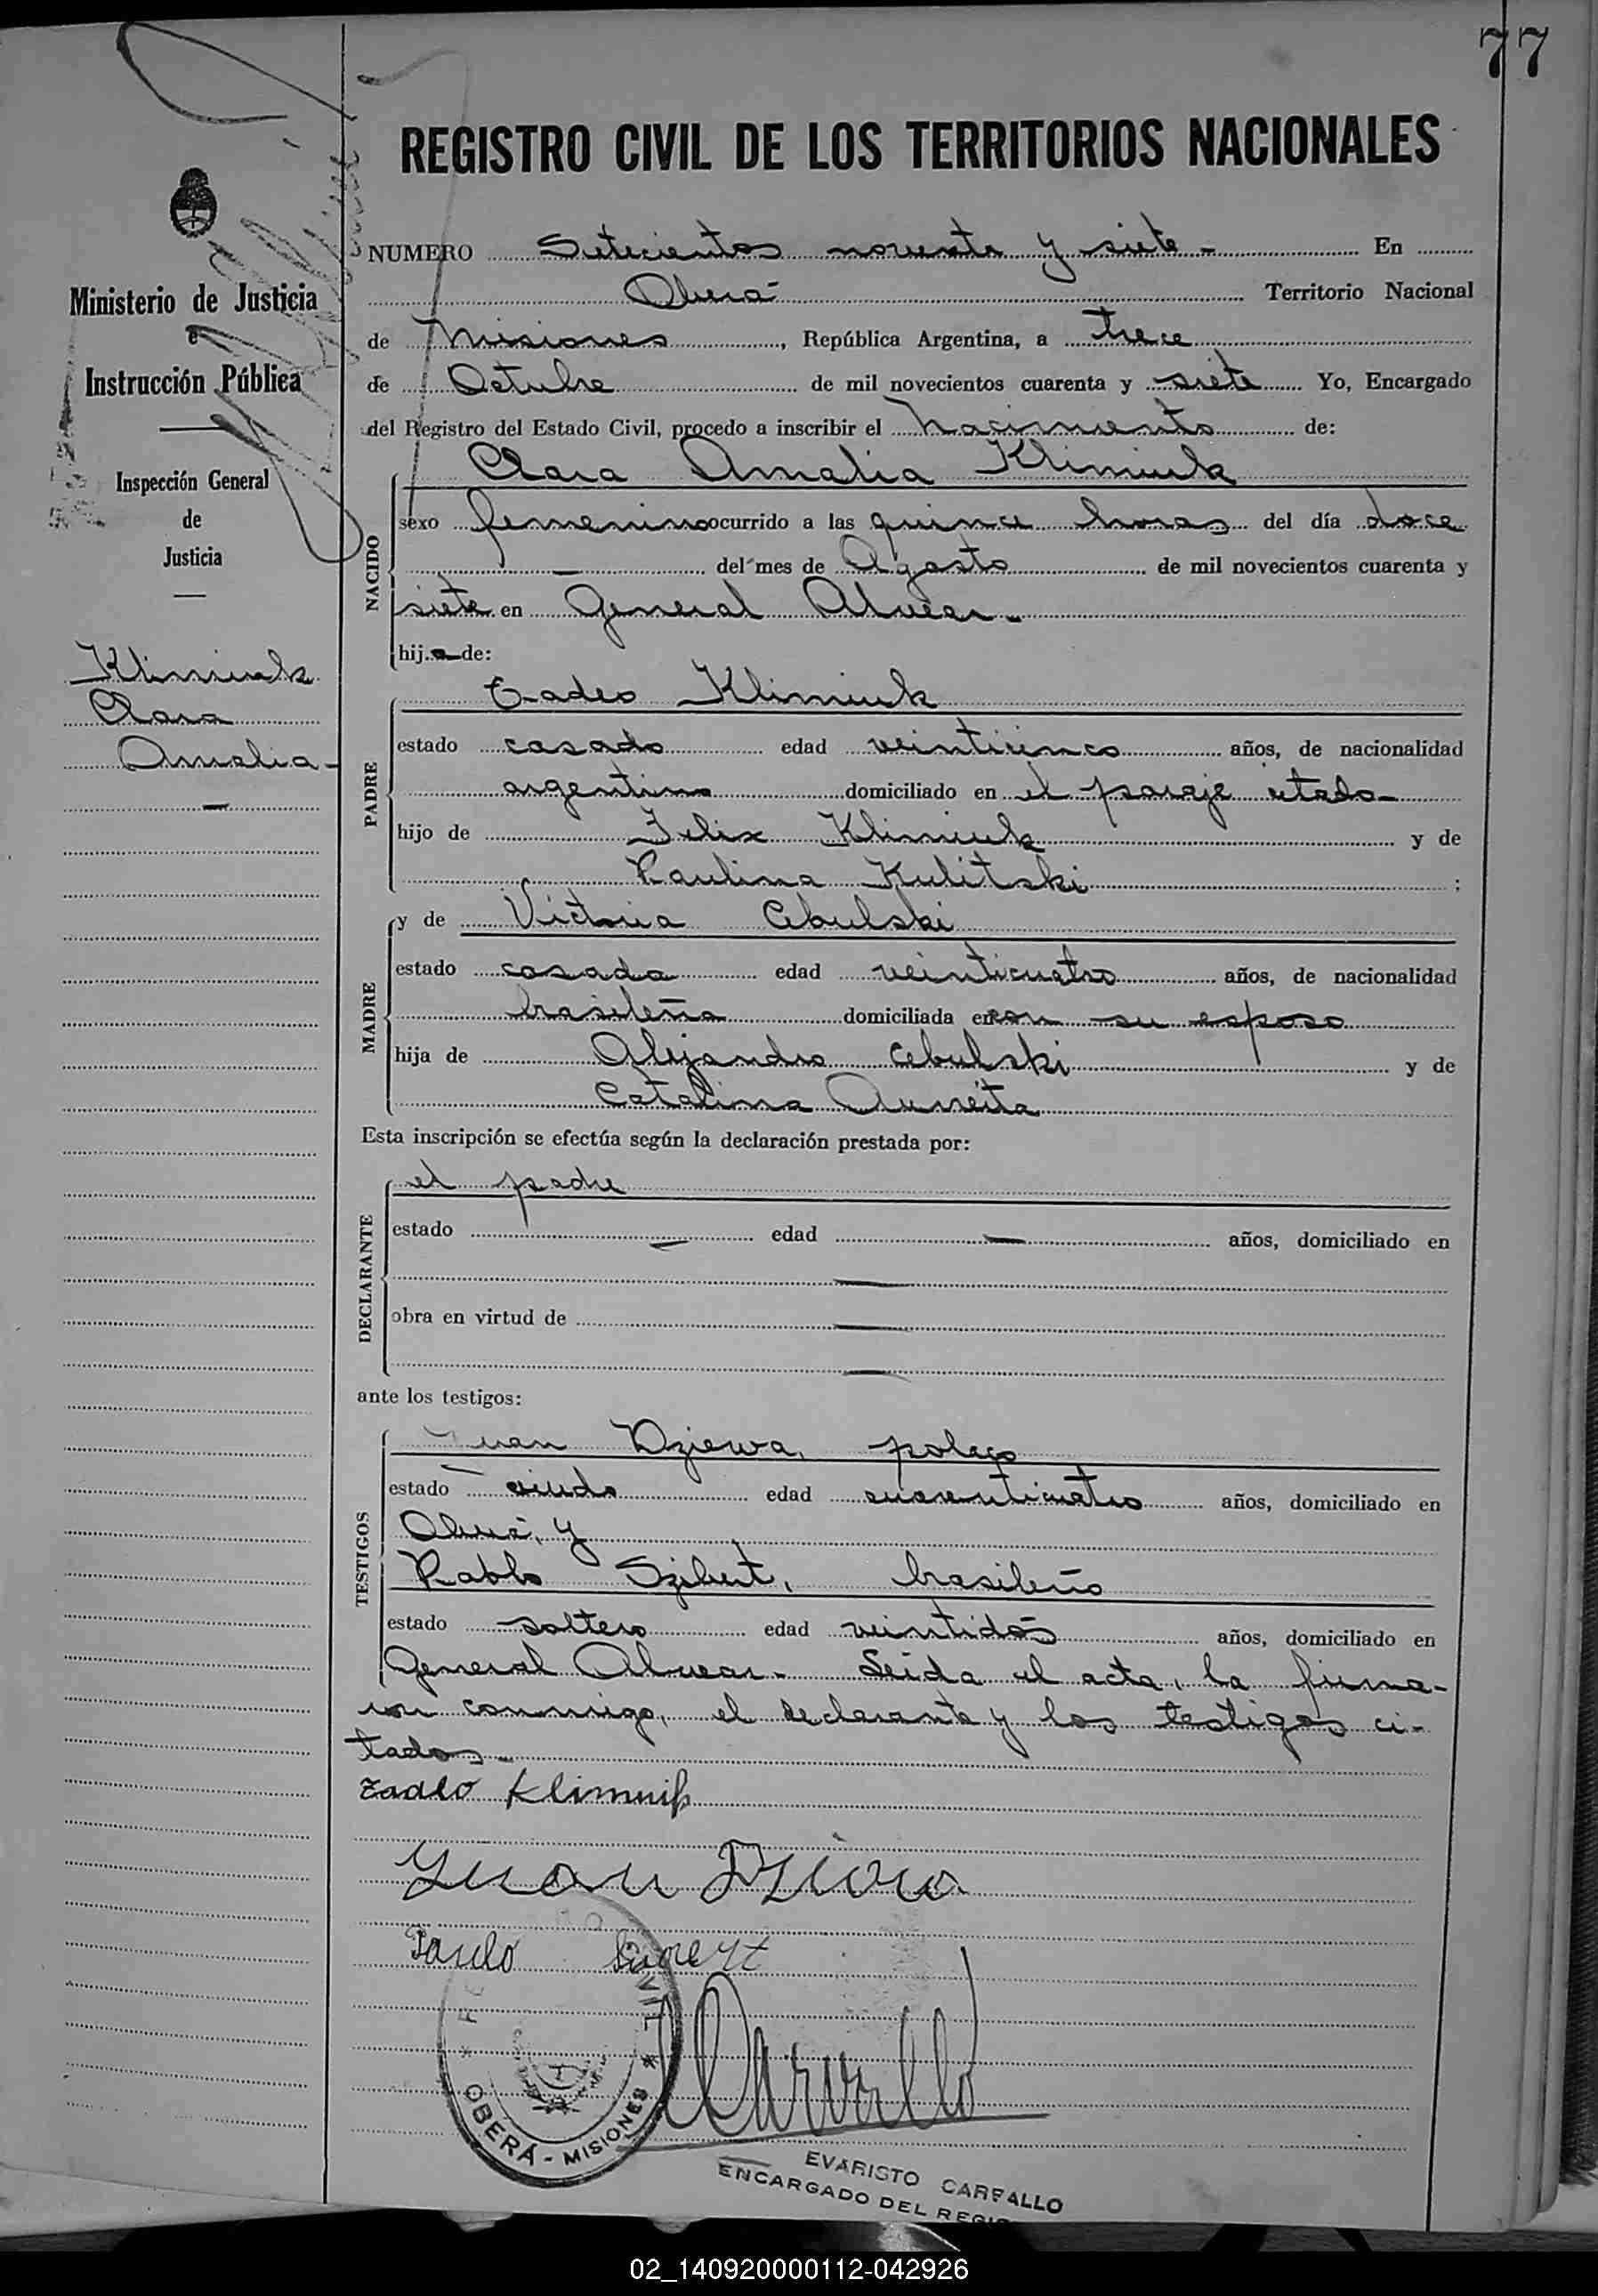 77
REGISTRO CIVIL DE LOS TERRITORIOS NACIONALES
Ministerio de Justicia
e
Instrucción Pública
Inspección General
de
Justicia
Klimiuk
Clara
Amalia -
NUMERO Setecientos noventa y siete - En
Oberá Territorio Nacional
de Misiones, República Argentina, a trece
de Octubre de mil novecientos cuarenta y siete Yo, Encargado
del Registro del Estado Civil, procedo a inscribir el nacimiento de:
Clara Amalia Klimiuk
NACIDO
sexo femenino ocurrido a las quince horas del día doce
— del mes de Agosto de mil novecientos cuarenta y
siete en General Alvear -
hija de:
PADRE
Tadeo Klimiuk
estado casado edad veinticinco años, de nacionalidad
argentino domiciliado en el paraje citado
hijo de Felix Klimiuk y de
Paulina Kulitski ;
MADRE
y de Victoria Cebulski
estado casada edad veinticuatro años, de nacionalidad
brasileña domiciliada en con su esposo
hija de Alejandro Cebulski y de
Catalina
Esta inscripción se efectúa según la declaración prestada por:
DECLARANTE
el padre
estado — edad — años, domiciliado en
—
obra en virtud de —
—
ante los testigos:
TESTIGOS
Juan Dziewa, polaco
estado viudo edad cuarenticuatro años, domiciliado en
Oberá, y
Pablo Szibert, brasileño
estado soltero edad veintidós años, domiciliado en
General Alvear - Leida el acta, la firma-
ron conmigo, el declarante y los testigos ci-
tados -
Tadeo Klimiuk
Juan Dziewa
Paulo
Carvallo
OBERÁ - MISIONES
EVARISTO CARVALLO
ENCARGADO DEL REGIS
02_140920000112-042926